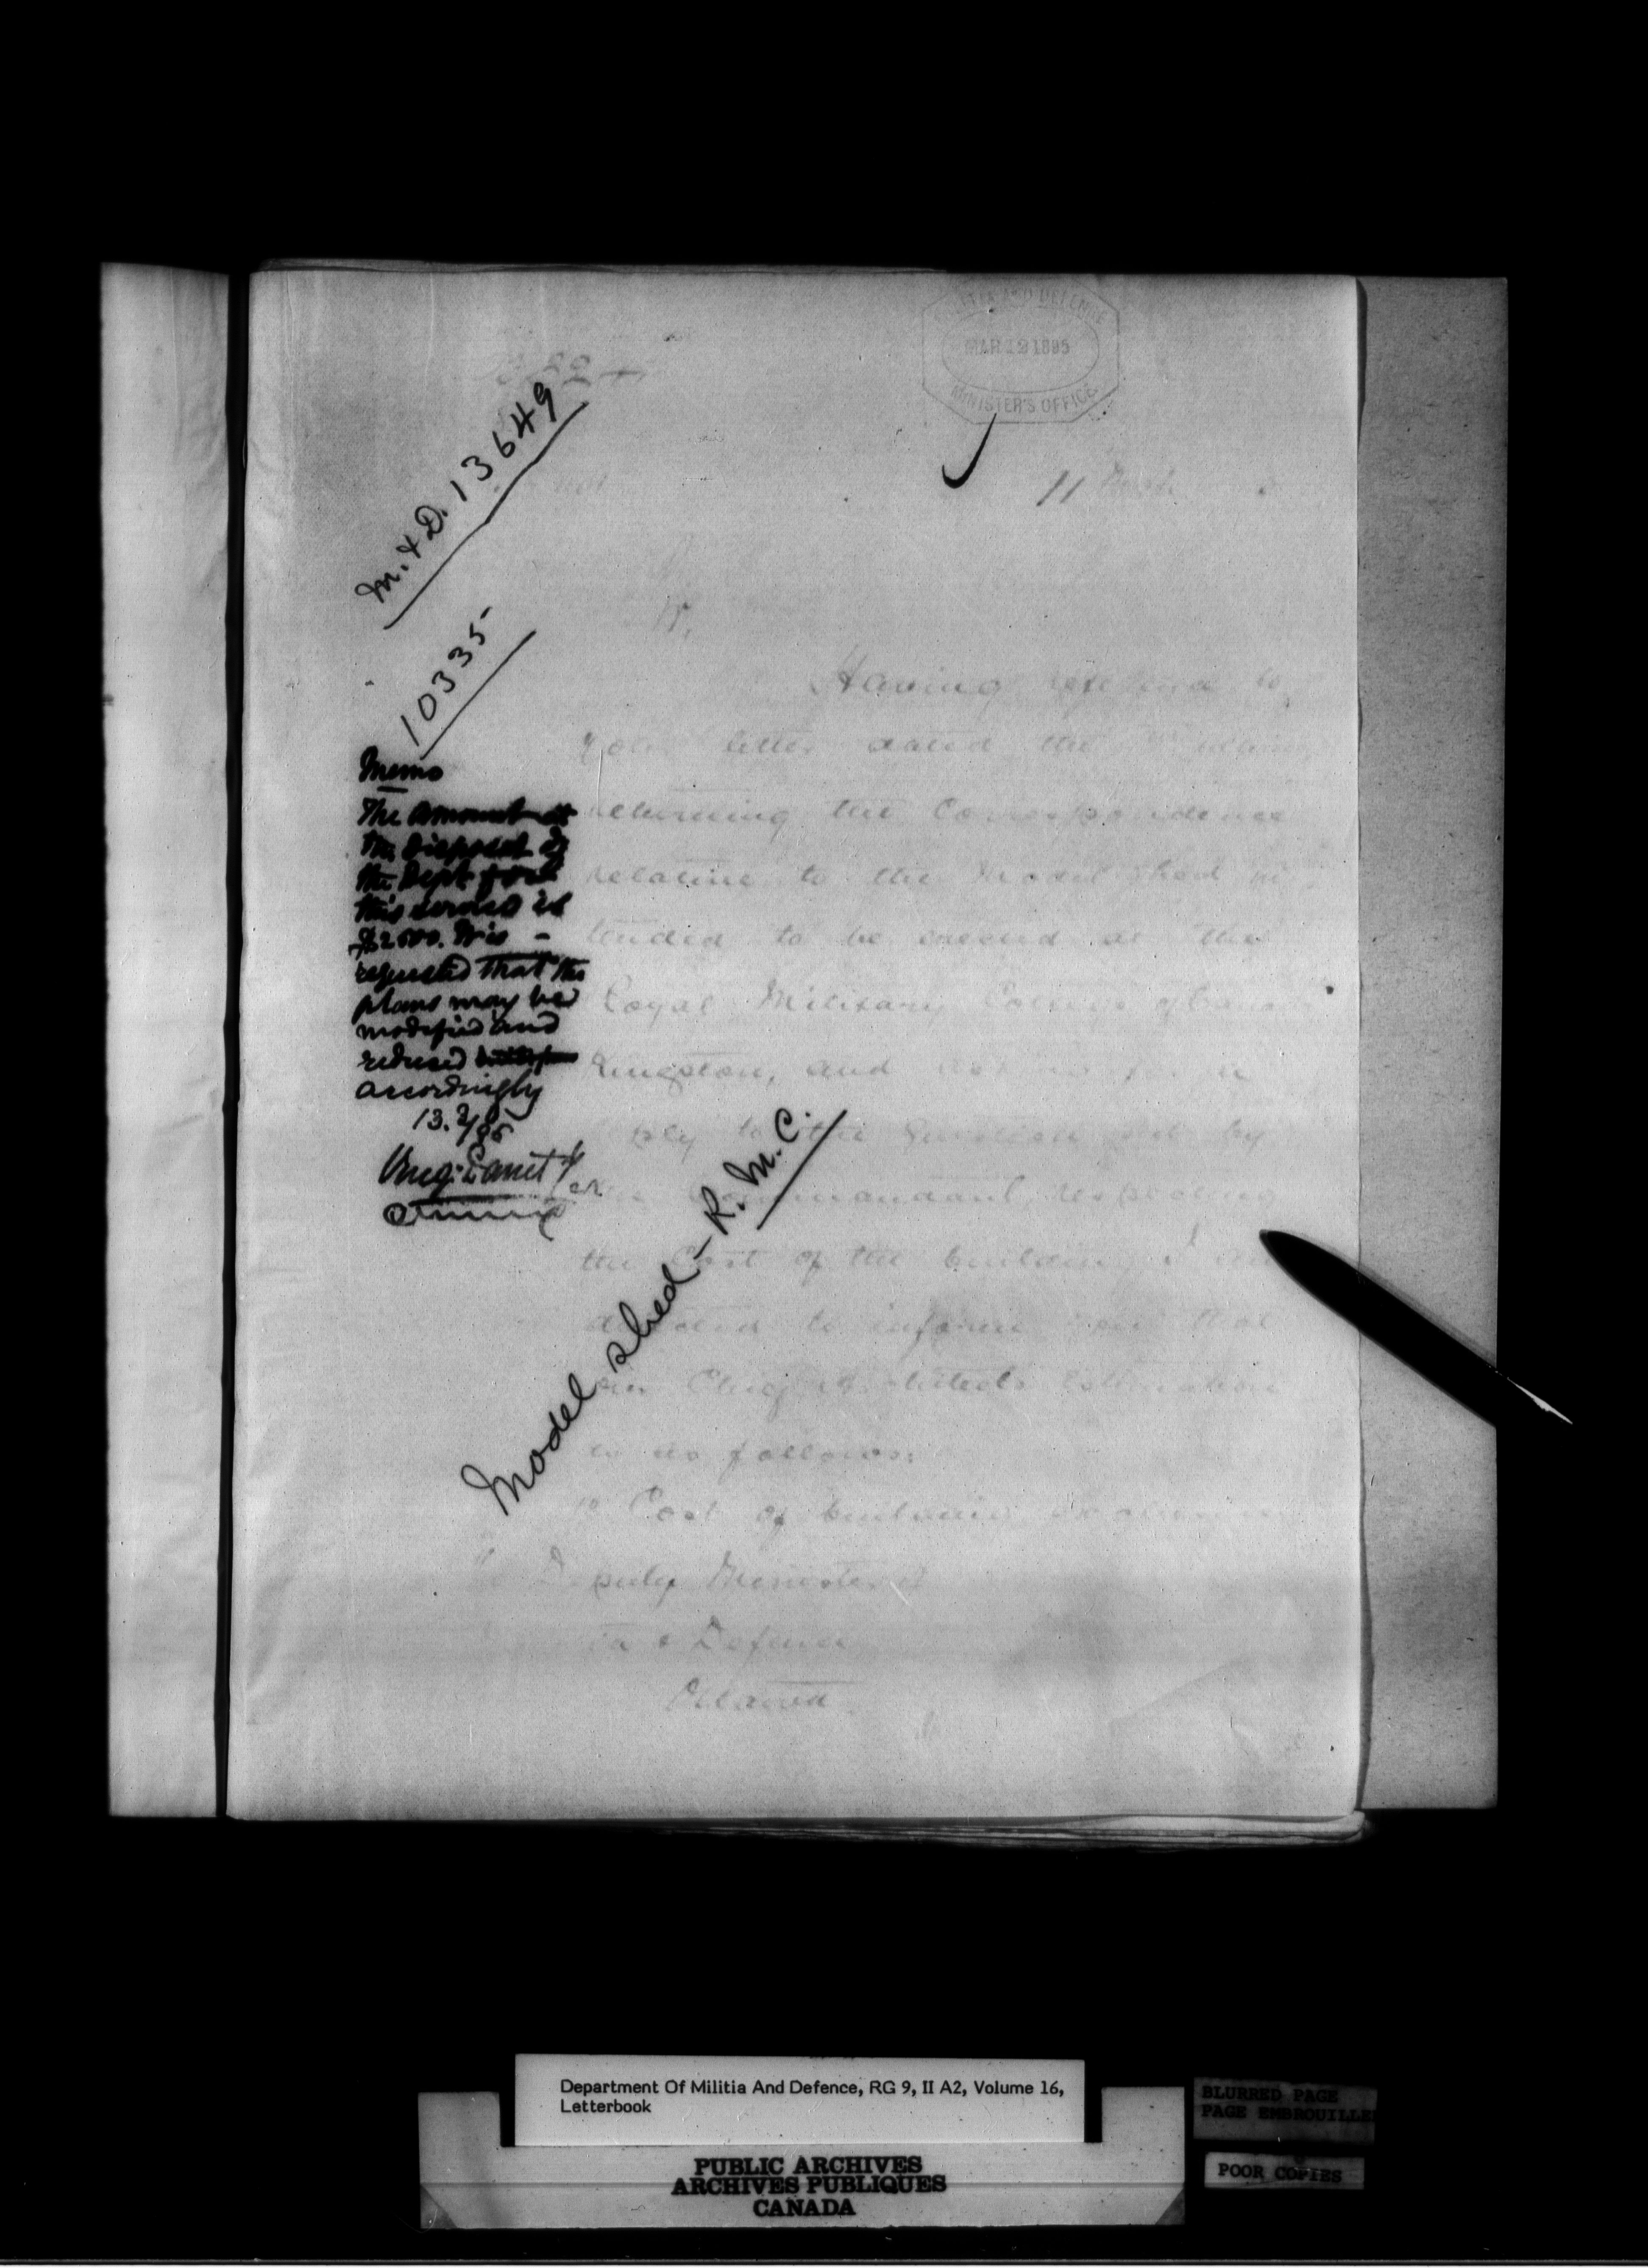 MILITIA AND DEFENCE
MAR 12 1895
MINISTER'S OFFICE
M. & D. 13649
11 March
10335
Having reference to
your letter dated the
returning the Correspondence
relative to the Model Shed in
tended to be erected at the
Royal Military College of
Kingston, and
reply to the question put by
the Commandant, respecting
the Cost of the building I am
directed to inform you that
our Chief Architect's estimation
is as follows:
1o Cost of building
Deputy Minister of
& Defence
Ottawa
Memo
The amount at
the disposal of
the Dept for
this service is
$2500. It is
requested that the
plans may be
modified and
reduced
accordingly
13.3/95
Model shed - R.M.C.
Department Of Militia And Defence, RG 9, II A2, Volume 16,
Letterbook
PUBLIC ARCHIVES
ARCHIVES PUBLIQUES
CANADA
BLURRED PAGE
PAGE EMBROUILLE
POOR COPIES